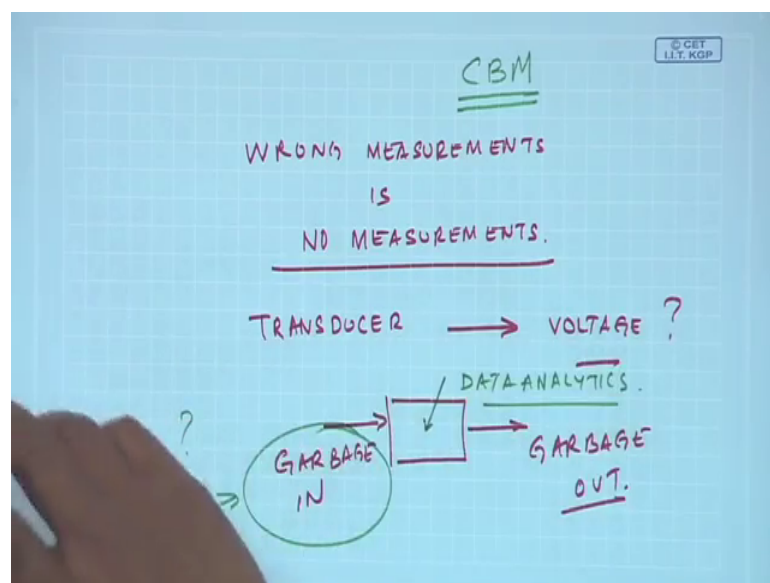 © CET
I.I.T. KGP
CBM
WRONG MEASUREMENTS
IS
NO MEASUREMENTS.
TRANSDUCER → VOLTAGE ?
DATA ANALYTICS.
?
GARBAGE
IN
GARBAGE
OUT.